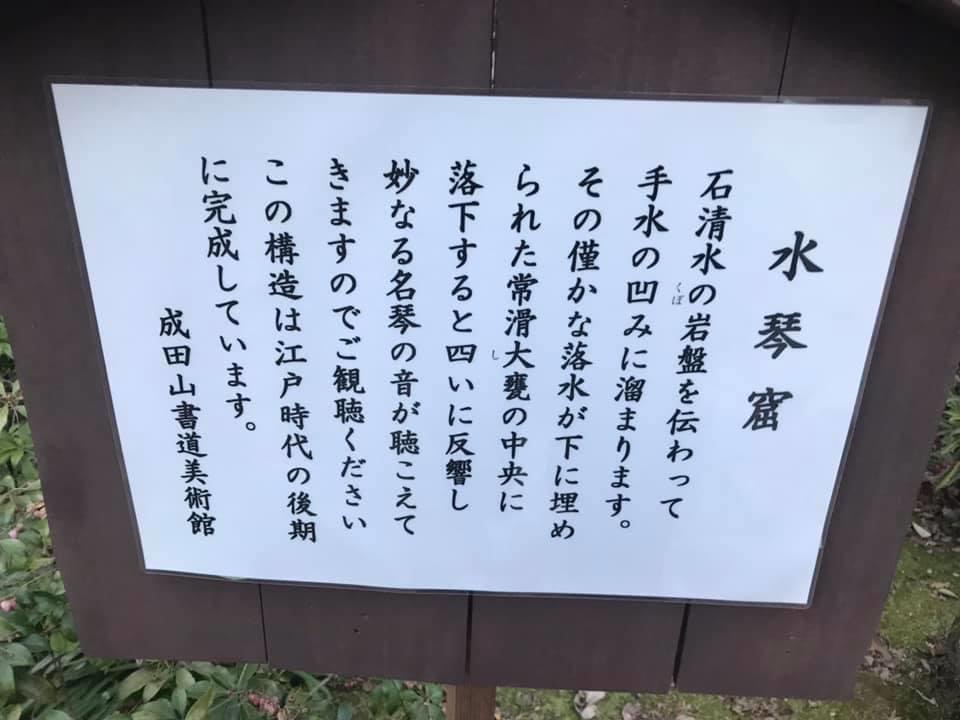 水琴窟
石清水の岩盤を伝わって
手水の凹みに溜まります。
その僅かな落水が下に埋め
られた常滑大甕の中央に
落下すると四いに反響し
妙なる名琴の音が聴こえて
きますのでご観聴ください
この構造は江戸時代の後期
に完成しています。
成田山書道美術館
くぼ
し